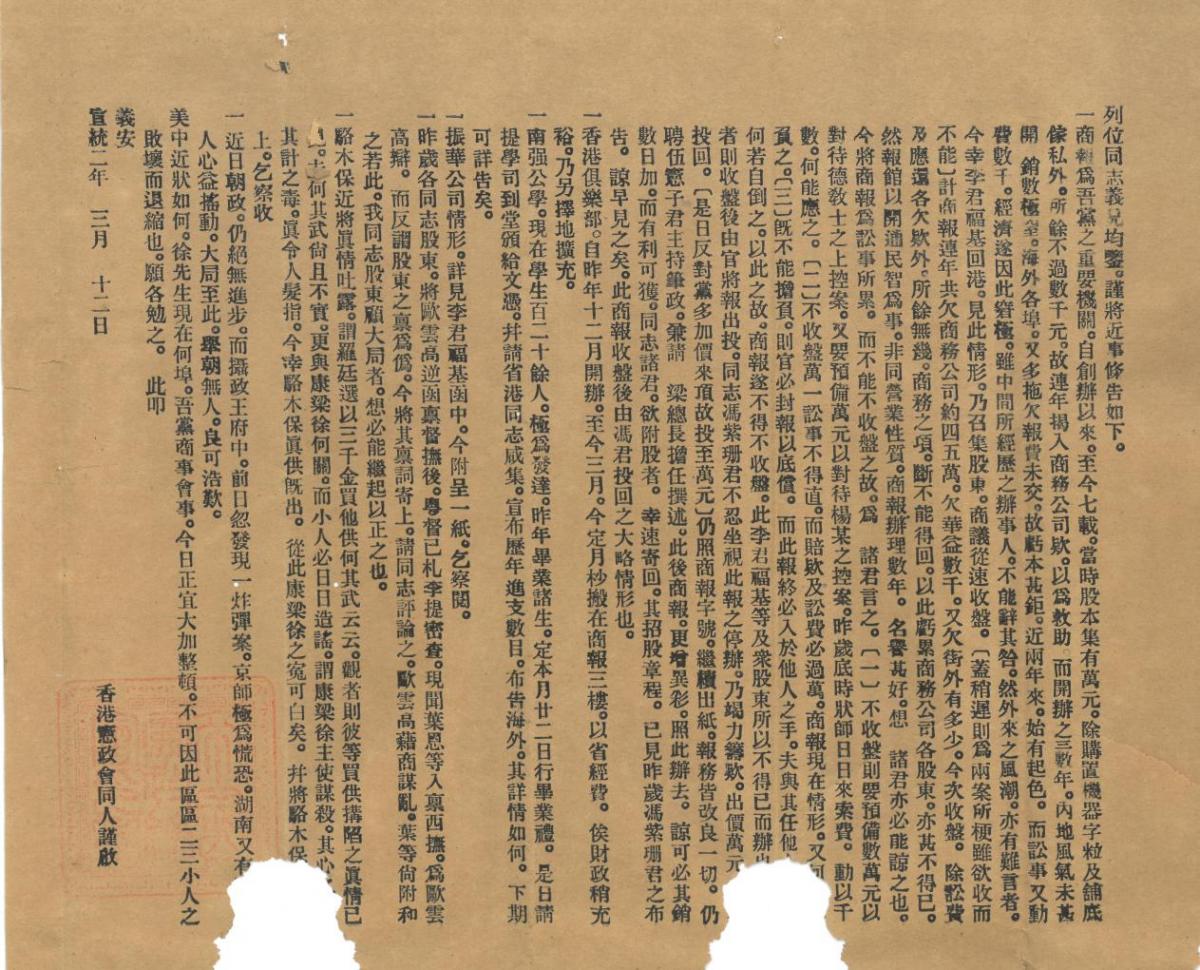 列位同志義兄均鑒。謹將近事條告如下。
一商報爲吾黨之重要機關。自創辦以來。至今七載。當時股本集有萬元。除購置機器字粒及舖底
傢私外。所餘不過數千元。故連年揭入商務公司欵。以爲救助。而開辦之三數年。內地風氣未甚
開。銷數極窒。海外各埠。又多拖欠報費未交。故虧本甚鉅。近兩年來。始有起色。而訟事又動
費數千。經濟遂因此窘極。雖中間所經歷之辦事人。不能辭其咎。然外來之風潮。亦有難言者。
今幸李君福基回港。見此情形。乃召集股東。商議從速收盤。〔蓋稍遲則爲兩案所梗雖欲收而
不能〕計商報連年共欠商務公司約四五萬。欠華益數千。又欠街外有多少。今次收盤。除訟費
及應還各欠欵外。所餘無幾。商務之項。斷不能得回。以此虧累商務公司各股東。亦甚不得已。
然報館以開通民智爲事。非同營業性質。商報辦理數年。名譽甚好。想 諸君亦必能諒之也。
今將商報爲訟事所累。而不能不收盤之故。爲 諸君言之。〔一〕不收盤則要預備數萬元以
對待德教士之上控案。又要預備萬元以對待楊某之控案。昨歲底時狀師日日來索費。動以千
數。何能應之。〔二〕不收盤萬一訟事不得直。而賠欵及訟費必過萬。商報現在情形。又何
負之。〔三〕旣不能擔負。則官必封報以底償。而此報終必入於他人之手。夫與其任他
何若自倒之。以此之故。商報遂不得不收盤。此李君福基等及衆股東所以不得已而辦
者則收盤後由官將報出投。同志馮紫珊君不忍坐視此報之停辦。乃竭力籌欵。出價萬元
投回。〔是日反對黨多加價來頂故投至萬元〕仍照商報字號。繼續出紙。報務皆改良一切。仍
聘伍憲子君主持筆政。兼請 梁總長擔任撰述。此後商報。更增異彩。照此辦去。諒可必其銷
數日加。而有利可獲。同志諸君。欲附股者。幸速寄回。其招股章程。已見昨歲馮紫珊君之布
告。諒早見之矣。此商報收盤後由馮君投回之大略情形也。
一香港俱樂部。自昨年十二月開辦。至今三月。今定月杪搬在商報三樓。以省經費。俟財政稍充
裕。乃另擇地擴充。
一南强公學。現在學生百二十餘人。極爲發達。昨年畢業諸生。定本月廿二日行畢業禮。是日請
提學司到堂頒給文憑。幷請省港同志咸集。宣布歷年進支數目。布告海外。其詳情如何。下期
可詳告矣。
一振華公司情形。詳見李君福基函中。今附呈一紙。乞察閱。
一昨歲各同志股東。將歐雲高逆函禀督撫後。粵督已札李提密查。現聞葉恩等入禀西撫。爲歐雲
高辯。而反謂股東之禀爲僞。今將其禀詞寄上。請同志評論之。歐雲高藉商謀亂。葉等尙附和
之若此。我同志股東顧大局者。想必能繼起以正之也。
一駱木保近將眞情吐露。謂羅廷選以三千金買他供何其武云云。觀者則彼等買供搆陷之眞情已
何其武尙且不實。更與康梁徐何關。而小人必日日造謠。謂康梁徐主使謀殺。其心
其計之毒。眞令人髮指。今幸駱木保眞供旣出。從此康梁徐之冤可白矣。幷將駱木保
上。乞察收
一近日朝政。仍絕無進步。而攝政王府中。前日忽發現一炸彈案。京師極爲慌恐。湖南又有
人心益搖動。大局至此。舉朝無人。良可浩歎。
美中近狀如何。徐先生現在何埠。吾黨商事會事。今日正宜大加整頓。不可因此區區二三小人之
敗壞而退縮也。願各勉之。 此叩
義安
香港憲政會同人謹啟
宣統二年 三月 十二日